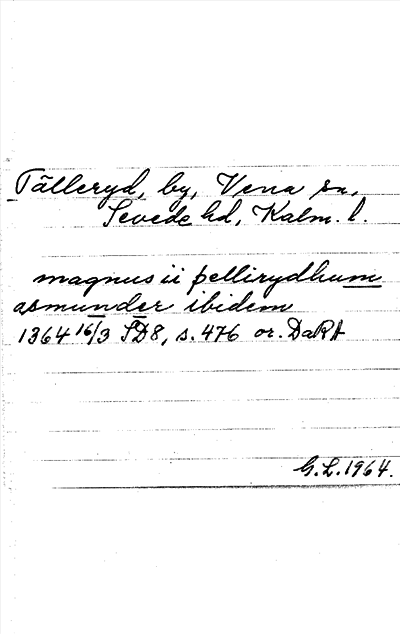 Tälleryd, by, Vena sn,
Sevede hd, Kalm. l.
magnus ii pellirydhum
asmunder ibidem
1364 16/3 SD8, s. 476 or. DaRA
G.L. 1964.